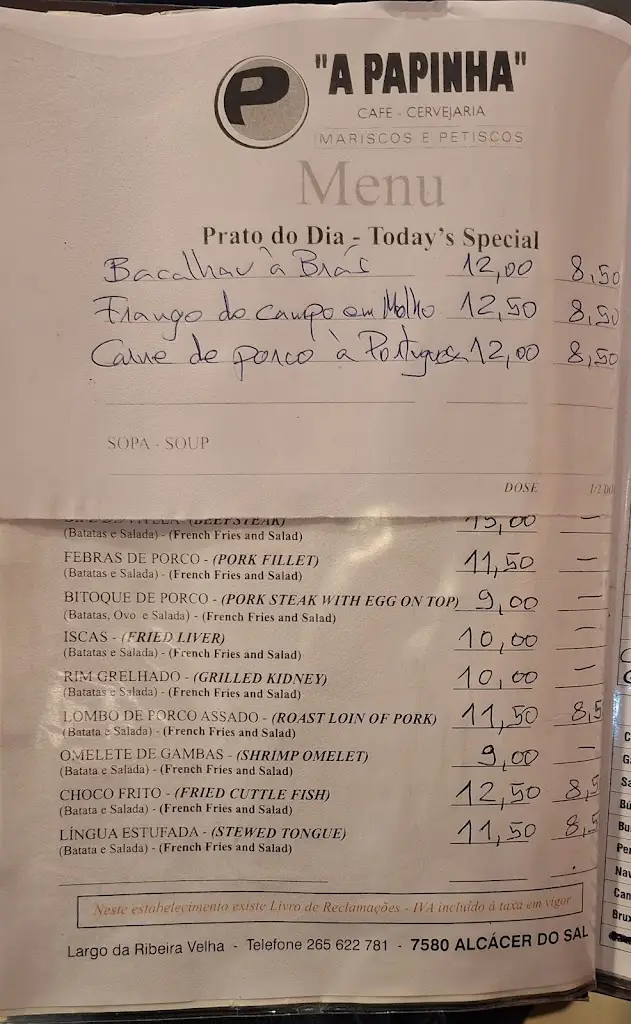 P "A PAPINHA"
CAFÉ - CERVEJARIA
MARISCOS E PETISCOS
Menu
Prato do Dia - Today's Special
Bacalhau à Brás 12,00 8,50
Frango do campo em Molho 12,50 8,50
Carne de porco à Portuguesa 12,00 8,50
SOPA - SOUP
DOSE 1/2 DO
(BEEFSTEAK) 15,00 —
(Batatas e Salada) - (French Fries and Salad)
FEBRAS DE PORCO - (PORK FILLET) 11,50 —
(Batatas e Salada) - (French Fries and Salad)
BITOQUE DE PORCO - (PORK STEAK WITH EGG ON TOP) 9,00 —
(Batatas, Ovo e Salada) - (French Fries and Salad)
ISCAS - (FRIED LIVER) 10,00 —
(Batatas e Salada) - (French Fries and Salad)
RIM GRELHADO - (GRILLED KIDNEY) 10,00 —
(Batatas e Salada) - (French Fries and Salad)
LOMBO DE PORCO ASSADO - (ROAST LOIN OF PORK) 11,50 8,5
(Batata e Salada) - (French Fries and Salad)
OMELETE DE GAMBAS - (SHRIMP OMELET) 9,00 —
(Batata e Salada) - (French Fries and Salad)
CHOCO FRITO - (FRIED CUTTLE FISH) 12,50 8,5
(Batata e Salada) - (French Fries and Salad)
LÍNGUA ESTUFADA - (STEWED TONGUE) 11,50 8,5
(Batata e Salada) - (French Fries and Salad)
Neste estabelecimento existe Livro de Reclamações - IVA incluído à taxa em vigor
Largo da Ribeira Velha - Telefone 265 622 781 - 7580 ALCÁCER DO SAL